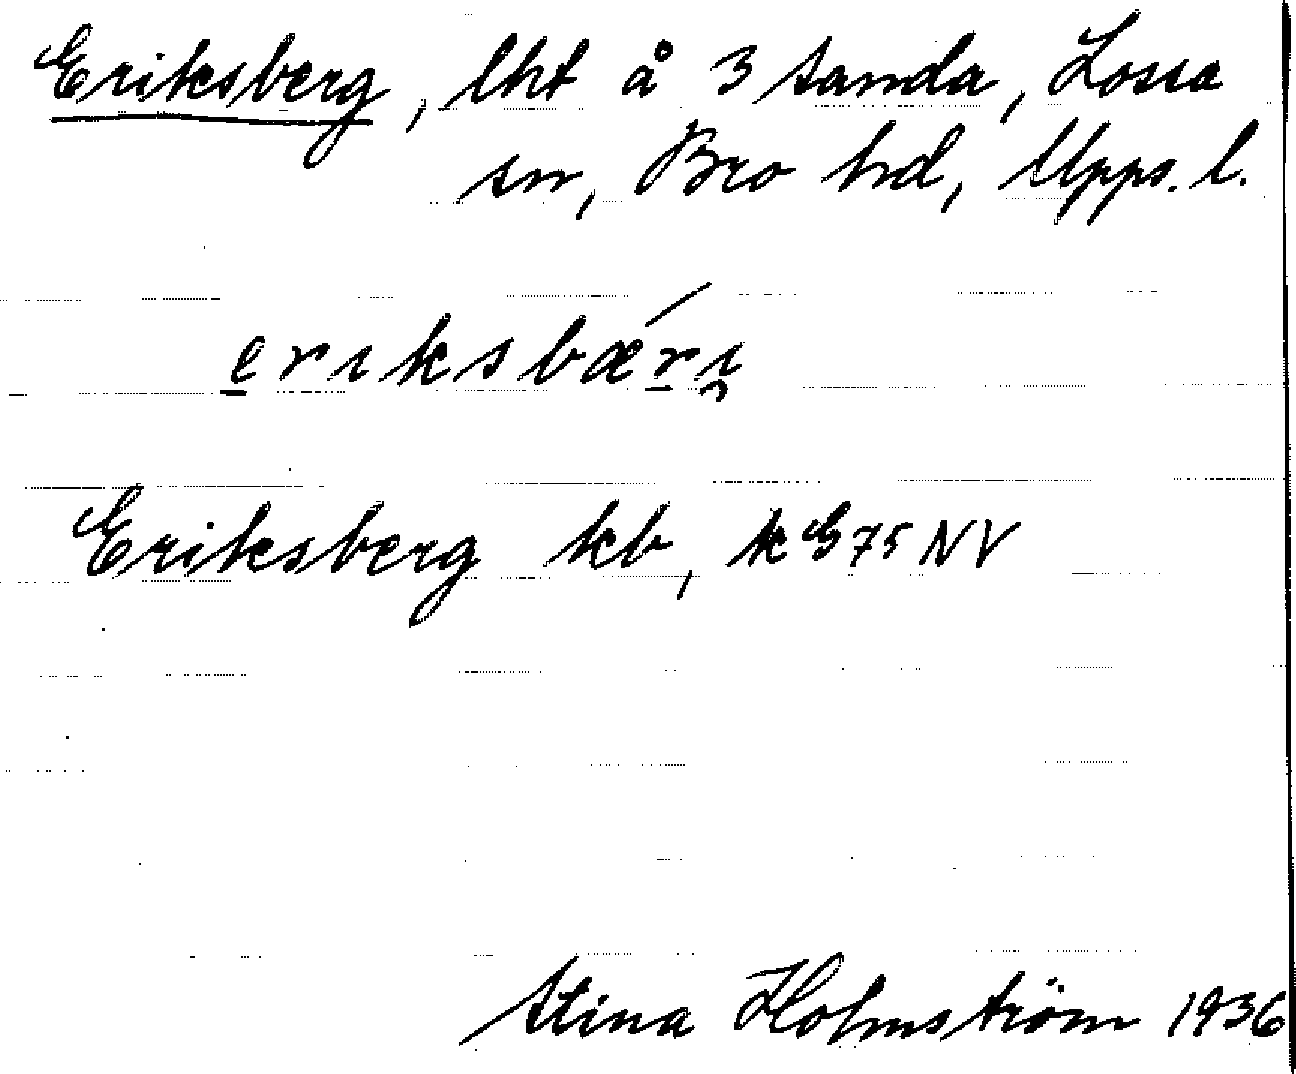 Eriksberg, lht å 3 Sanda, Lossa
sn, Bro hd, Upps. l.
eriksbæri
Eriksberg kb, kG75NV
Stina Holmström 1936